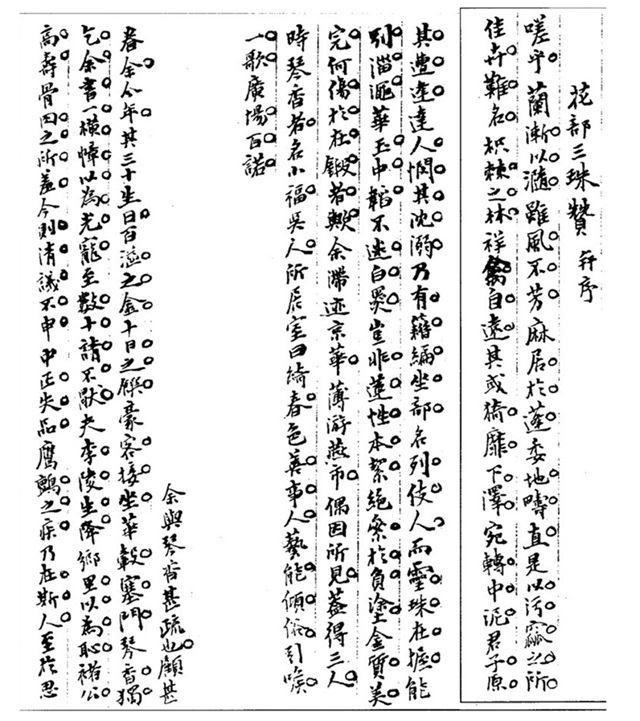 花部三珠贊 并序
嗟乎蘭漸以滫雖風不芳麻居於蓬委地疇直是以污窳之所
佳卉難名枳棘之林祥禽自遠其或猗靡下澤宛轉中泥君子原
其遭達人憫其沈溺乃有籍編坐部名列伎人而靈珠在握能
別淄澠華玉中韜不迷白黑豈非蓮性本絜絕於負塗金質美
完何傷於在鍛者歟余滯迹京華薄游燕市偶因所見蓋得三人
時琴香者名小福吳人所居室曰綺春色善事人藝能傾俗引喉
一歌廣場百諾
余與琴香甚疏也顧甚
春余今年其三十生日百溢之金十日之饌豪客接坐華轂塞門琴香獨
乞余書一橫幛以為光寵至數十請不厭夫李陵生降鄉里以為恥褚公
高壽骨肉之所羞今則清議不申中正失品鷹鸇之疾乃在斯人至於忍